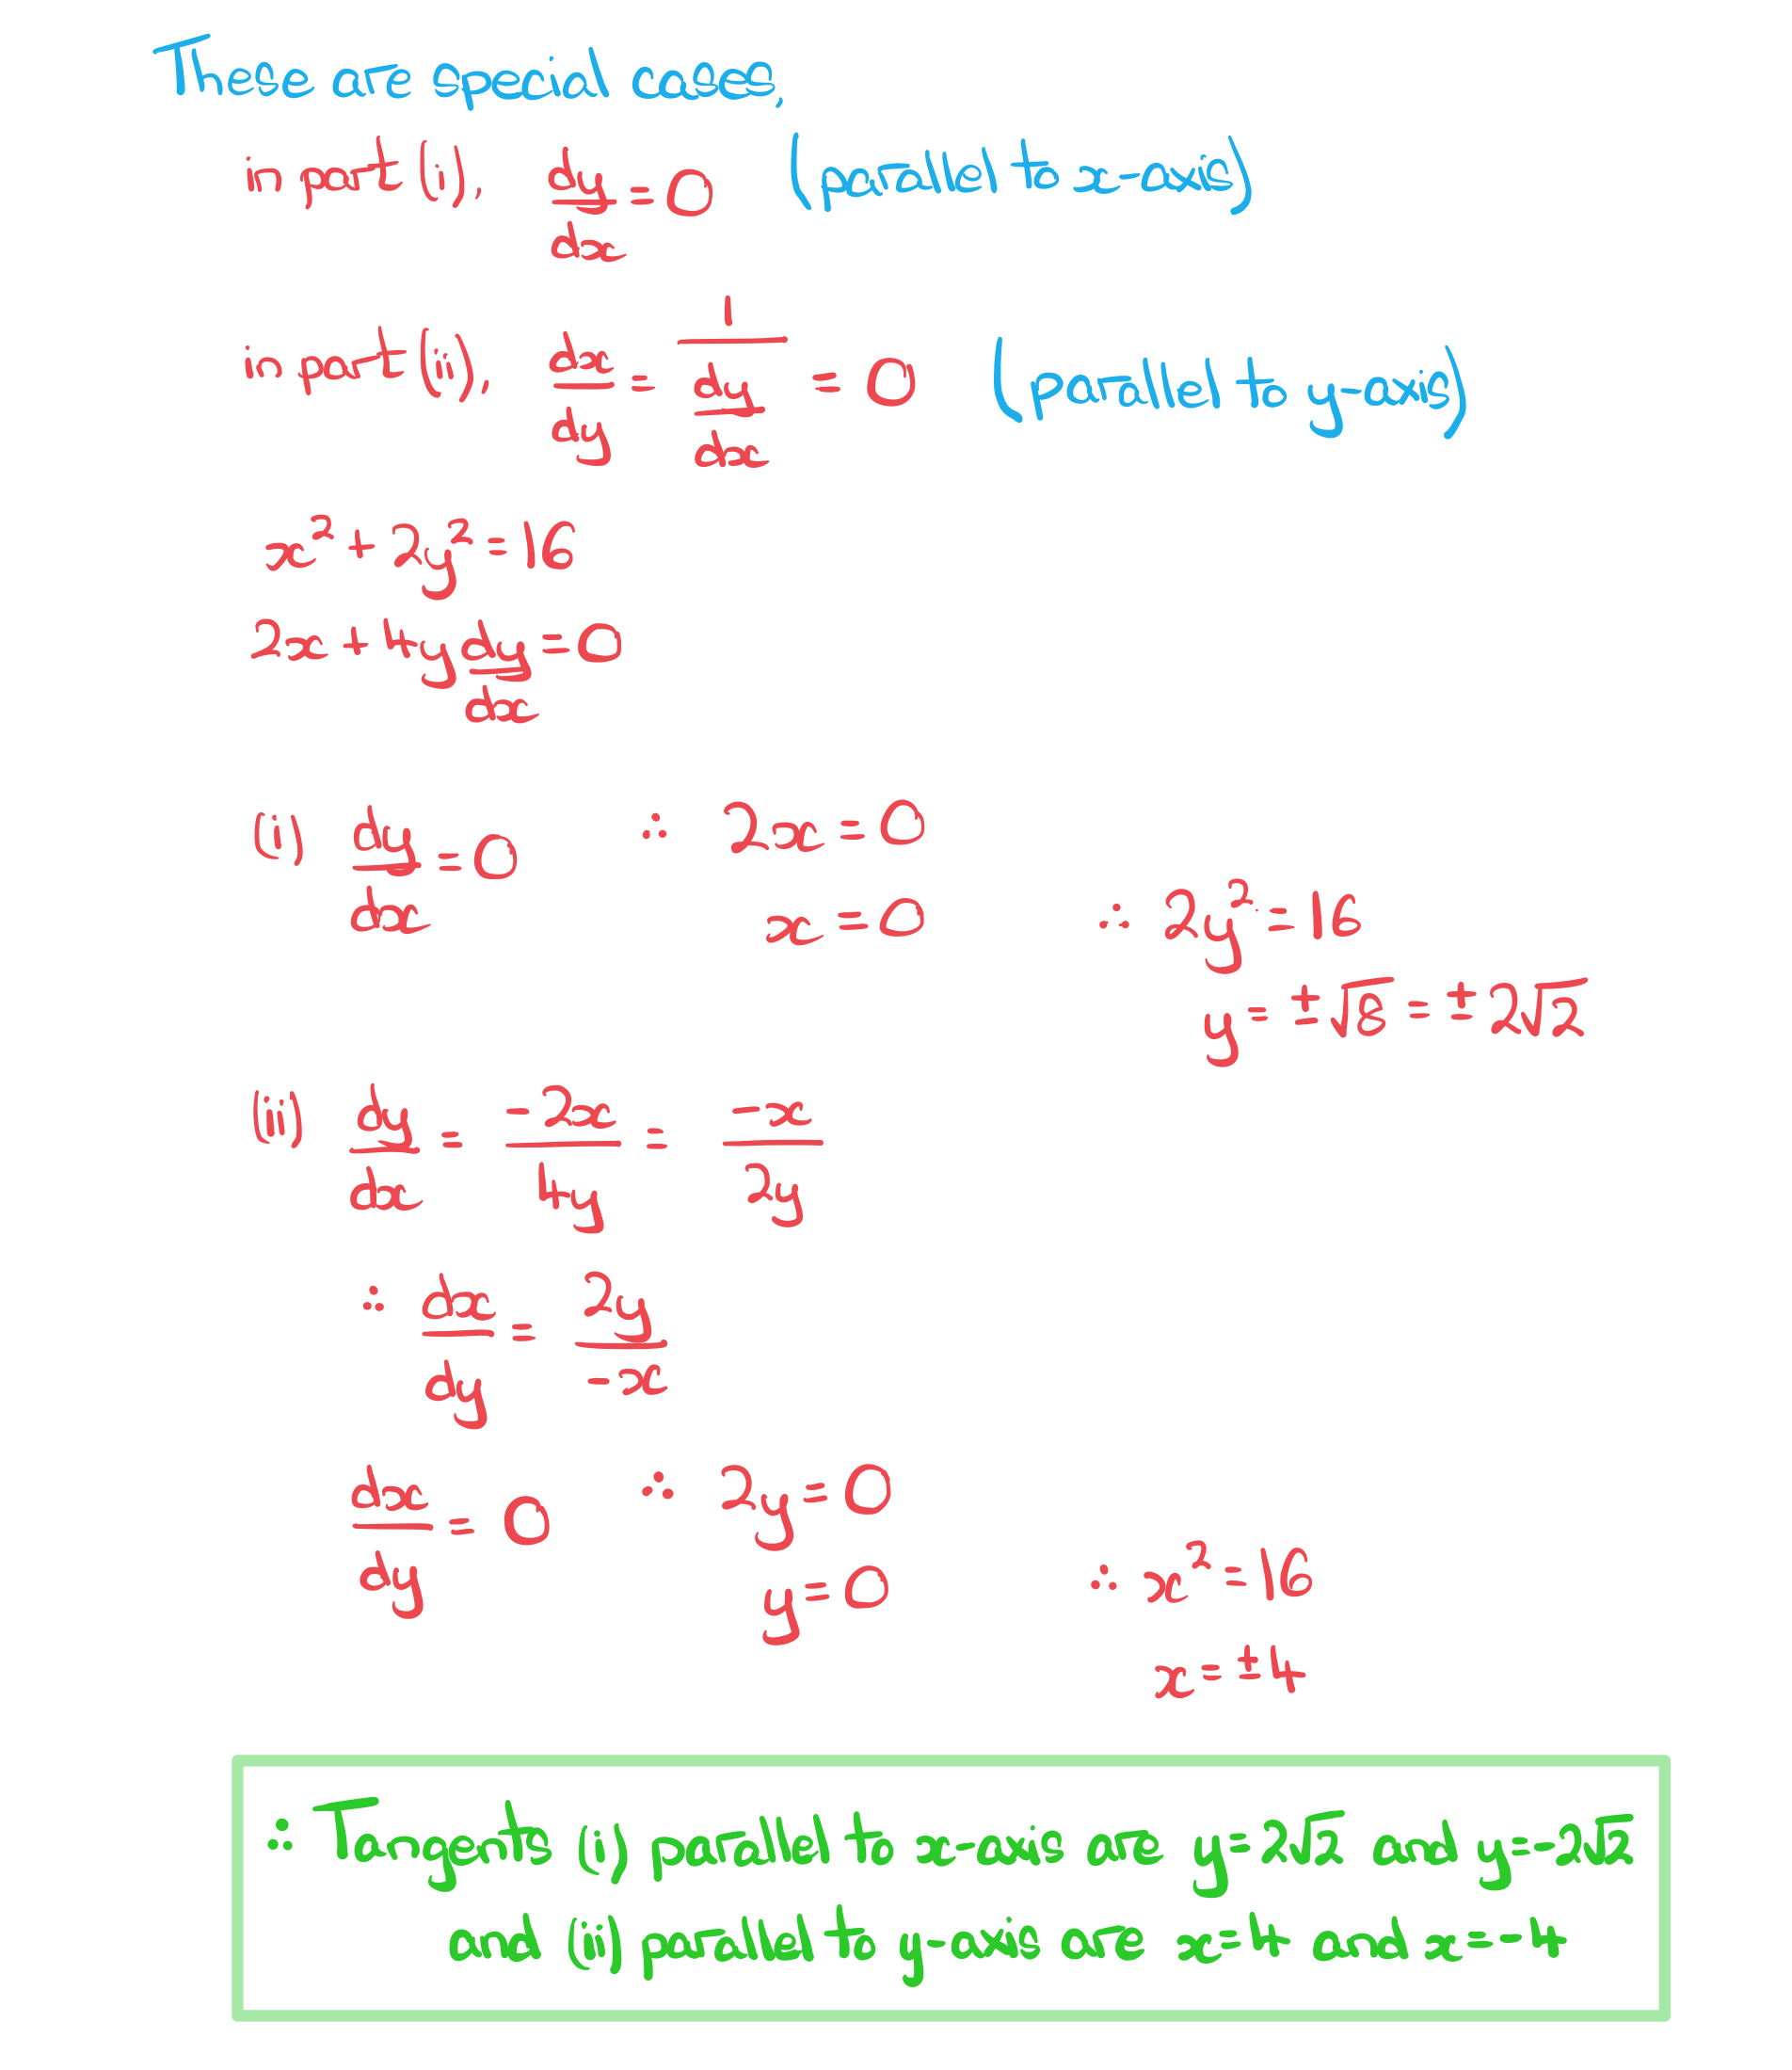 These are special cases,
in part (i), dy/dx = 0 (parallel to x-axis)
in part (ii), dx/dy = 1/(dy/dx) = 0 (parallel to y-axis)
x² + 2y² = 16
2x + 4y dy/dx = 0
(i) dy/dx = 0 ∴ 2x = 0
x = 0 ∴ 2y² = 16
y = ±√8 = ±2√2
(ii) dy/dx = -2x/4y = -x/2y
∴ dx/dy = 2y/-x
dx/dy = 0 ∴ 2y = 0
y = 0 ∴ x² = 16
x = ±4
∴ Tangents (i) parallel to x-axis are y=2√2 and y=-2√2
and (ii) parallel to y-axis are x=4 and x=-4